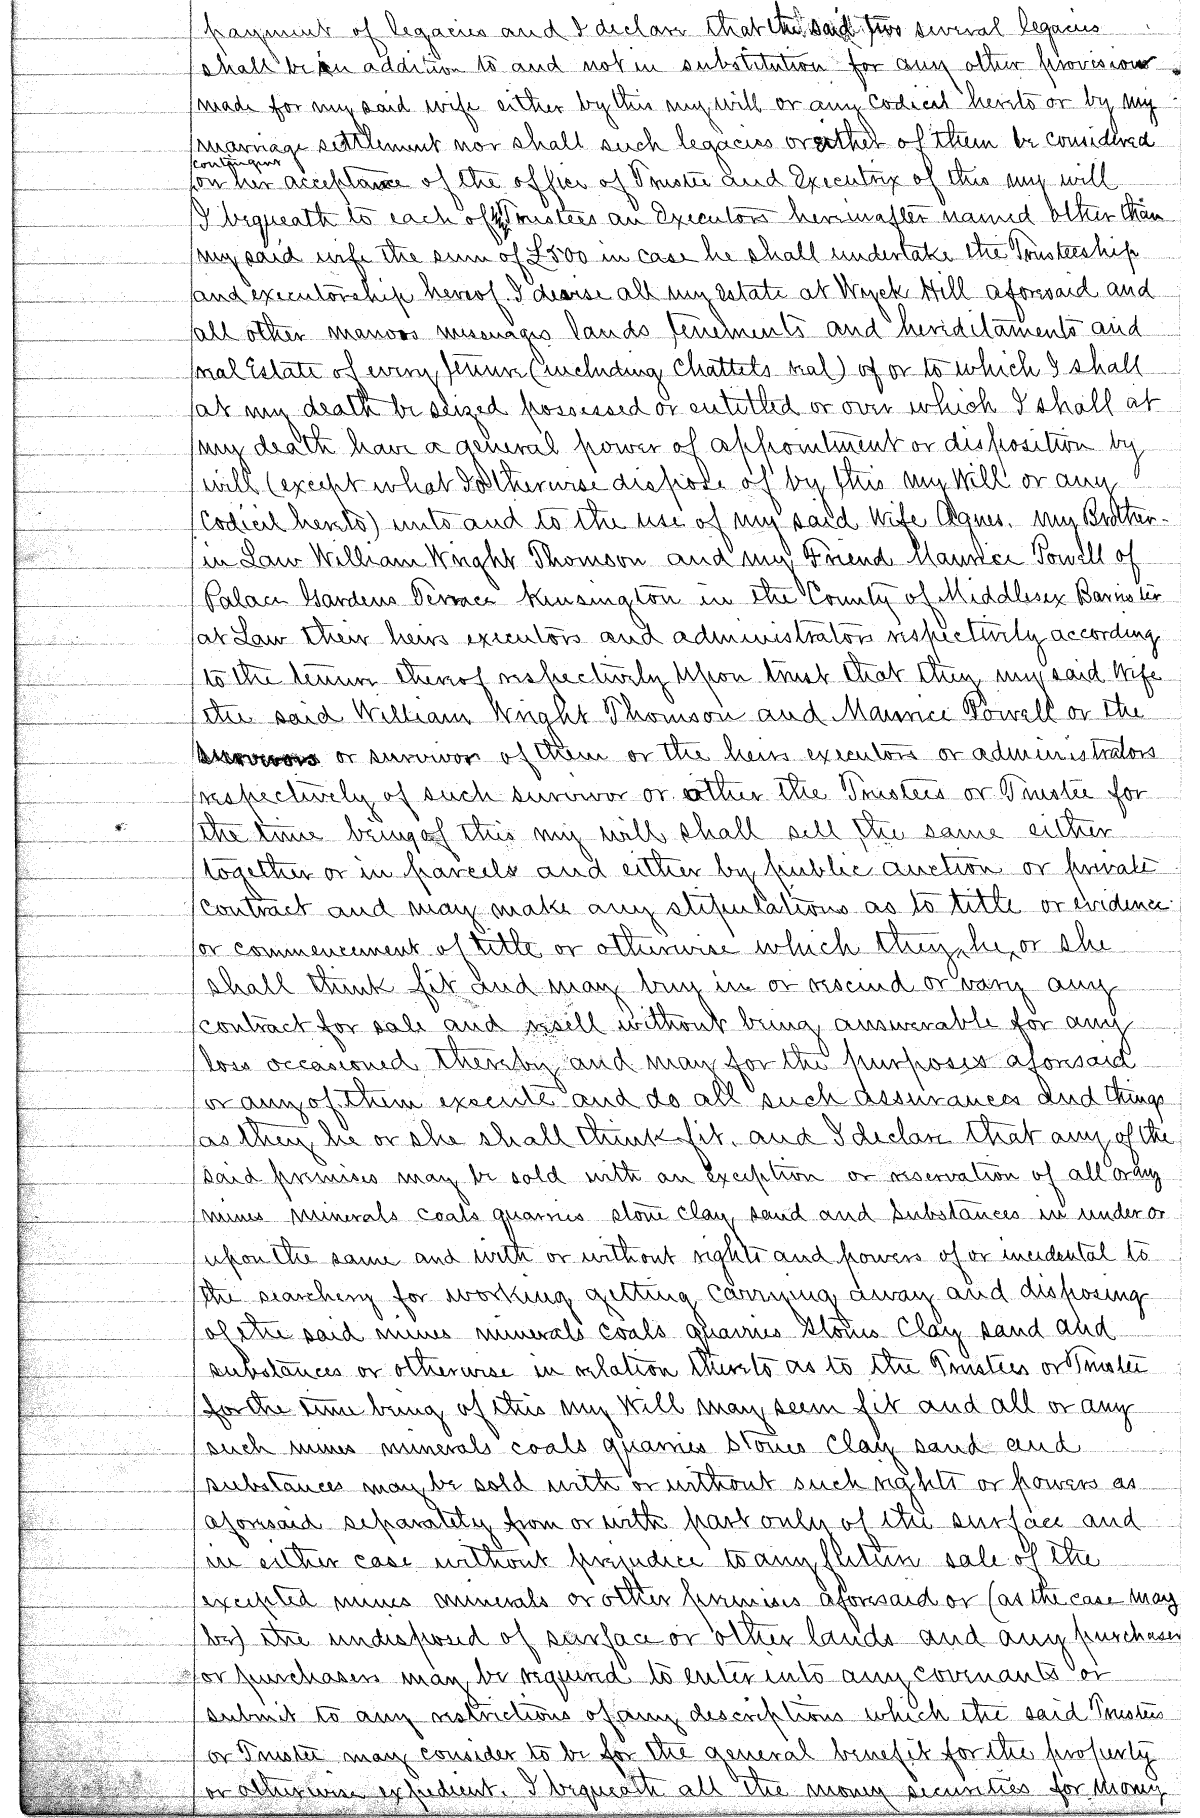 payment of legacies and I declare that the said two several legacies
shall be in addition to and not in substitution for any other provision
made for my said wife either by this my will or any Codicil hereto or by my
marriage settlement nor shall such legacies or either of them be considered
contingent
on her acceptance of the office of Trustee and Executrix of this my will
I bequeath to each of my Trustees an Executors hereinafter named other than
my said wife the sum of £500 in case he shall undertake the Trusteeship
and executorship hereof. I devise all my Estate at Wyck Hill aforesaid and
all other manors messuages lands tenements and hereditaments and
real Estate of every tenure (including Chattels real) of or to which I shall
at my death be seized possessed or entitled or over which I shall at
my death have a general power of appointment or disposition by
will (except what I otherwise dispose of by this my Will or any
Codicil hereto) unto and to the use of my said Wife Agnes. my Brother-
in Law William Wright Thomson and my Friend Maurice Powell of
Palace Gardens Terrace Kensington in the County of Middlesex Barrister
at Law their heirs executors and administrators respectively according
to the tenure thereof respectively Upon trust that they my said Wife
the said William Wright Thomson and Maurice Powell or the
survivors or survivor of them or the heirs executors or administrators
respectively of such survivor or other the Trustees or Trustee for
the time being of this my will shall sell the same either
together or in parcels and either by public auction or private
contract and may make any stipulations as to title or evidence
or commencement of title or otherwise which they, he, or she
shall think fit and may buy in or rescind or vary any
contract for sale and resell without being answerable for any
loss occasioned thereby and may for the purposes aforesaid
or any of them execute and do all such assurances and things
as they he or she shall think fit. and I declare that any of the
said premises may be sold with an exception or reservation of all or any
mines minerals coals quarries stone clay sand and substances in under or
upon the same and with or without rights and powers of or incidental to
the searchery for working getting carrying away and disposing
of the said mines minerals coals quarries stones clay sand and
substances or otherwise in relation thereto as to the Trustees or Trustee
for the time being of this my Will may seem fit and all or any
such mines minerals coals quarries stones clay sand and
substances may be sold with or without such rights or powers as
aforesaid separately from or with part only of the surface and
in either case without prejudice to any future sale of the
excepted mines minerals or other premises aforesaid or (as the case may
be) the undisposed of surface or other lands and any purchaser
or purchasers may be required to enter into any covenants or
submit to any restrictions of any descriptions which the said Trustees
or Trustee may consider to be for the general benefit for the property
or otherwise expedient. I bequeath all the money securities for money